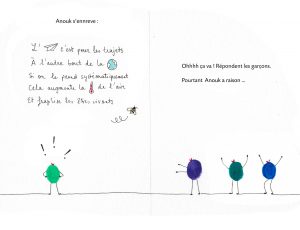 Anouk s'ennreve :
L' c'est pour les trajets
À l'autre bout de la
Si on le prend systématiquement
Cela augmente la de l'air
Et fragilise les êtres vivants
! ! !
Ohhhh ça va ! Répondent les garçons.
Pourtant Anouk a raison ...